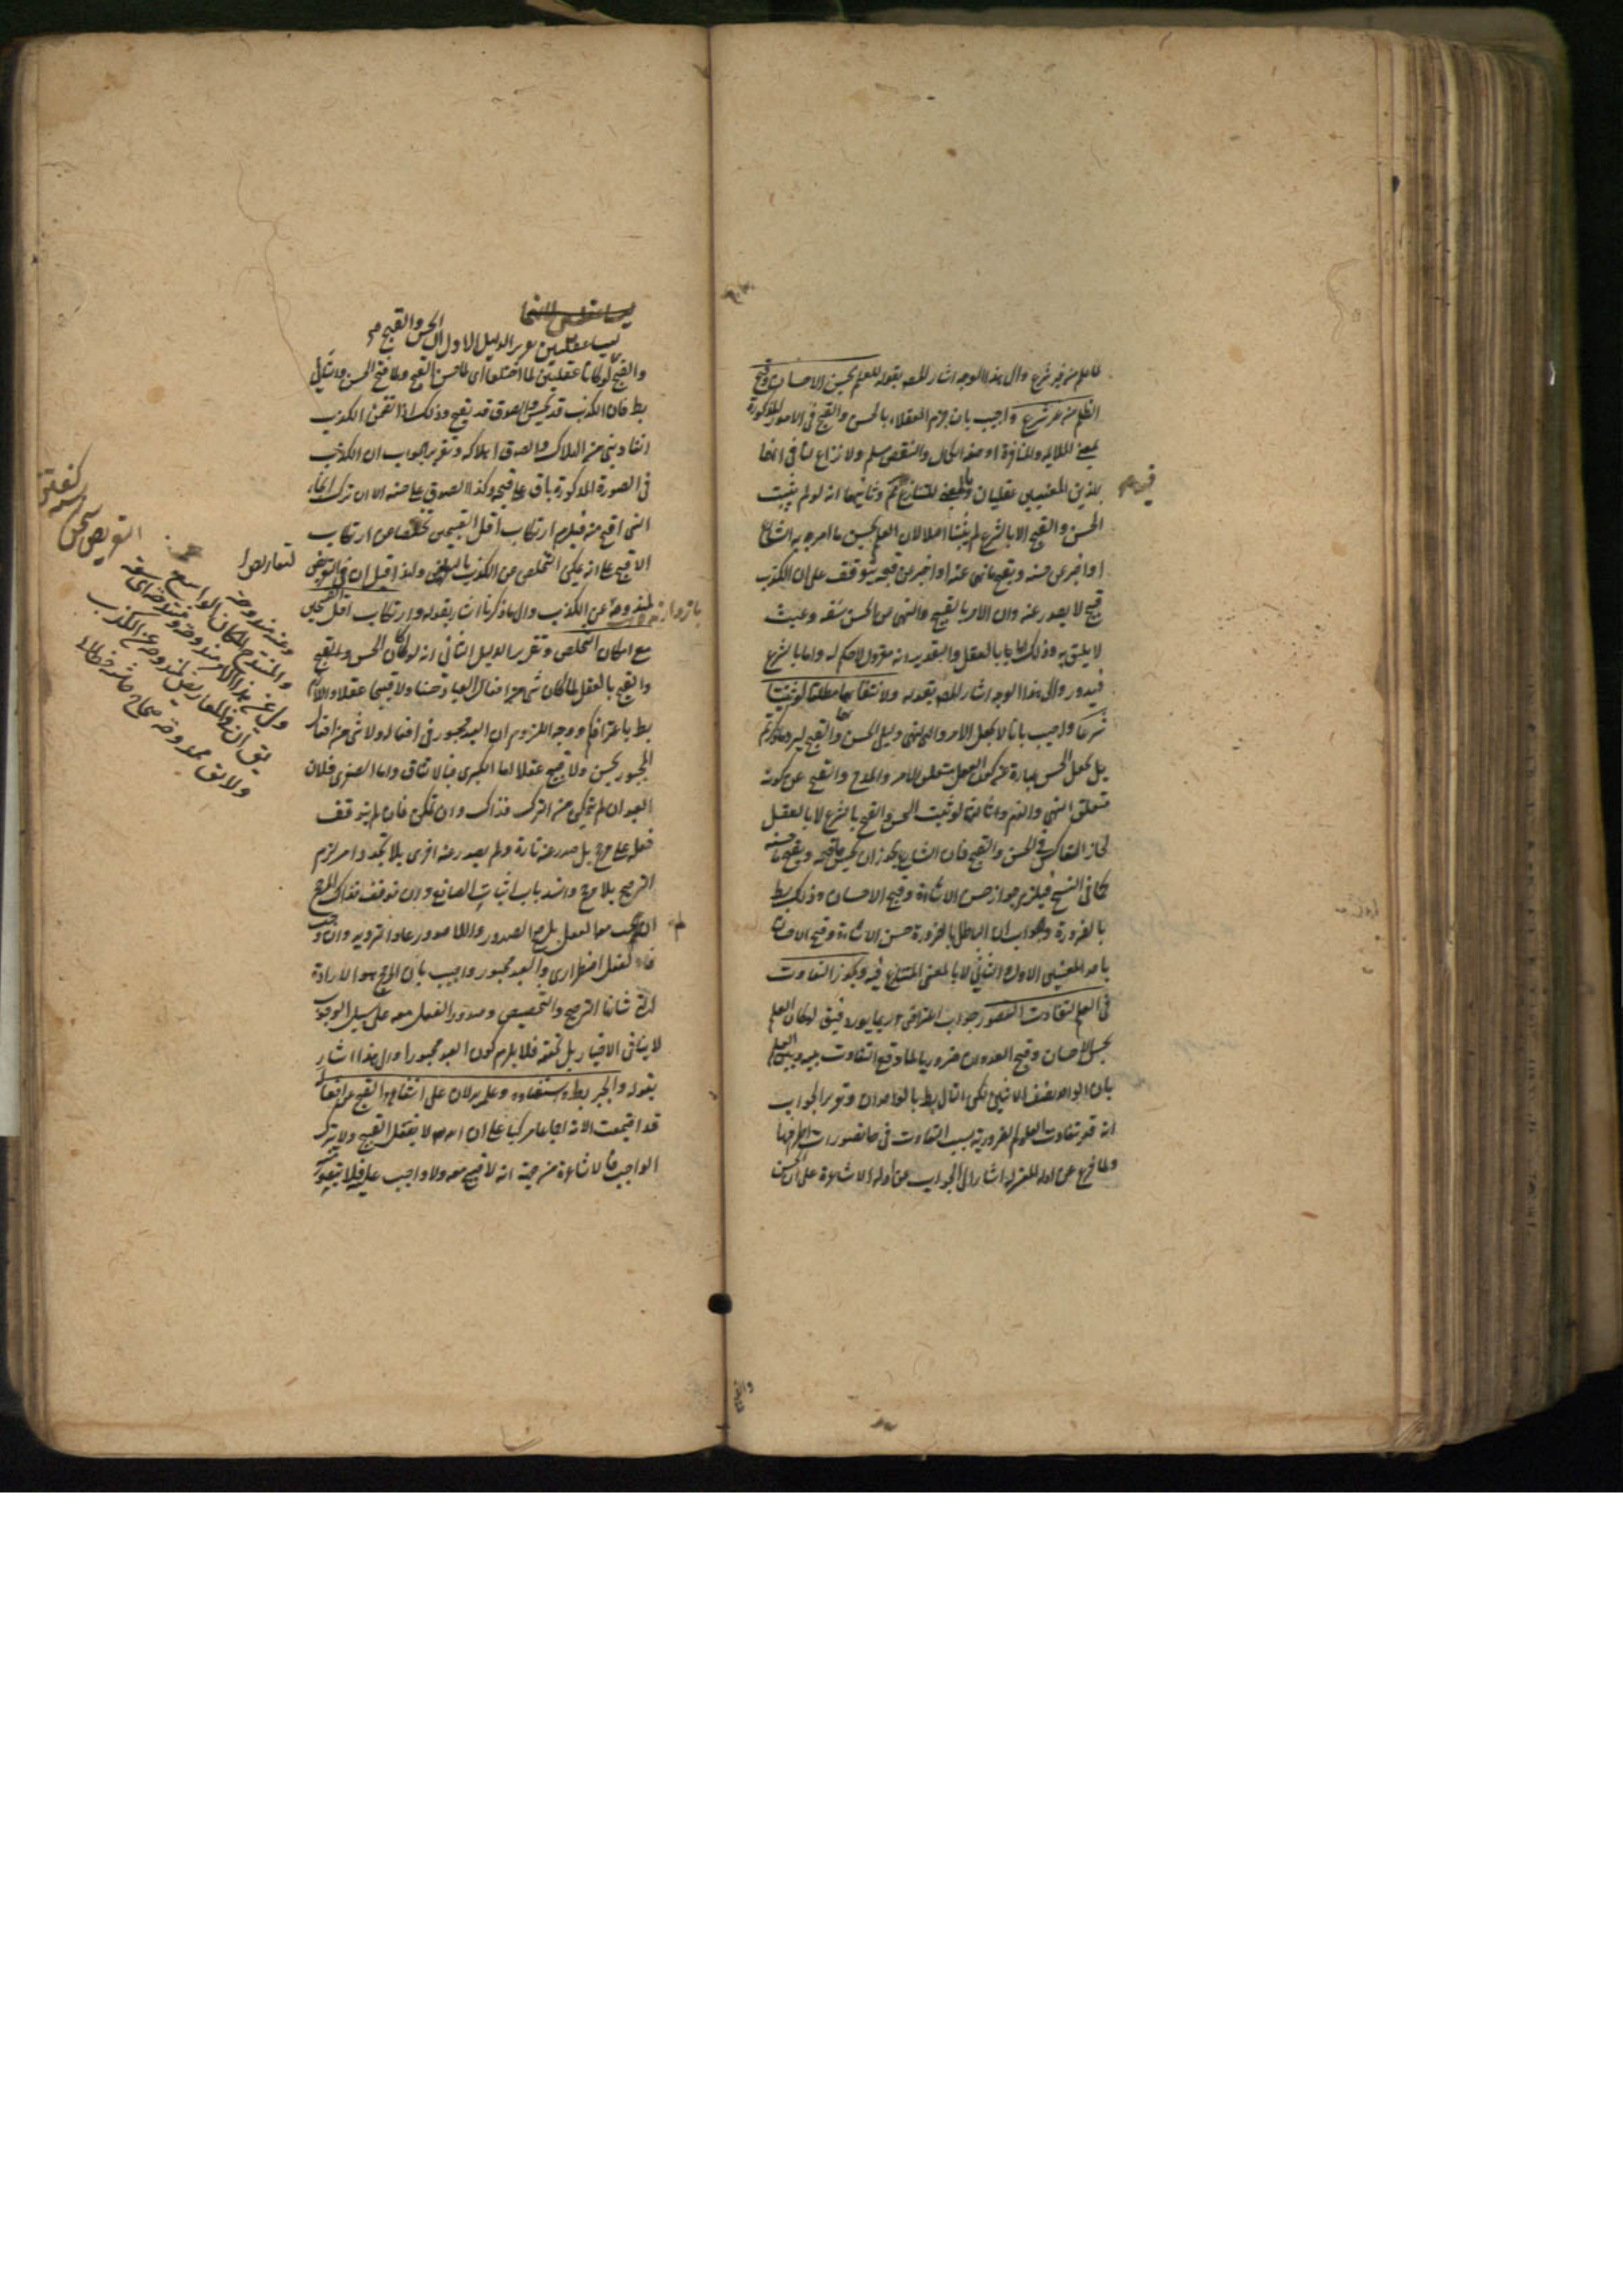 لما علم من غير شرع والى هذا الوجه اشار المصـ بقوله للعلم بحسن الاحسان وقبح
الظلم من غير شرع واجيب بان جزم العقلاء بالحسن والقبح فى الامور المذكورة
بمعنى الملايمة والمنافرة او صفة الكمال والنقص مسلم ولا نزاع لنا فى انهما
بهذين المعنيين عقليان وبالمعنى المتنازع فيه مم وثانيها انه لو لم يثبت
الحسن والقبح الا بالشرع لم يثبتا اصلا لان العلم بحسن ما امر به الشارع
او اخبر عن حسنه وبقبح ما نهى عنه او اخبر عن قبحه يتوقف على ان الكذب
قبيح لا يصدر عنه وان الامر بالقبيح والنهى عن الحسن سفه وعبث
لا يليق به وذلك اما بالعقل والتقدير انه معزول لا حكم له واما بالشرع
فيدور والى هذا الوجه اشار المصـ بقوله ولانتفائهما مطلقا لو ثبتا
شرعا واجيب بانا لا نجعل الامر والنهى دليل الحسن والقبح ليرد ما ذكرتم
بل نجعل الحسن عبارة عن كون الفعل متعلق الامر والمدح والقبح عن كونه
متعلق النهى والذم وثالثها لو ثبت الحسن والقبح بالشرع لا بالعقل
لجاز التعاكس فى الحسن والقبح فان الشارع يجوز ان يحسن ما قبحه ويقبح ما حسنه
كما فى النسخ فيلزم جواز حسن الاساءة وقبح الاحسان وذلك بط
بالضرورة وجوابه ان الباطل بالضرورة حسن الاساءة وقبح الاحسان
باحد المعنيين الاول او الثانى لا بالمعنى المتنازع فيه ويجوز التفاوت
فى العلم لتفاوت التصور جواب اعتراض ربما يورد فيق لو كان العلم
بحسن الاحسان وقبح العدوان ضروريا لما وقع التفاوت بينه وبين العلم
بان الواحد نصف الاثنين لكن التالى بط بالوجدان وتقرير الجواب
انه قد تتفاوت العلوم الضرورية بسبب التفاوت فى تصورات اطرافها
ولما فرغ عن ادلة المعتزلة اشار الى الجواب عن ادلة الاشاعرة على ان الحسن
ليسا عقليين تقرير الدليل الاول ان الحسن والقبح
والقبح لو كانا عقليين لما اختلفا اى لما حسن القبيح ولما قبح الحسن والتالى
بط فان الكذب قد يحسن والصدق قد يقبح وذلك اذا تضمن الكذب
انقاذ نبى من الهلاك والصدق اهلاكه وتقرير الجواب ان الكذب
فى الصورة المذكورة باق على قبحه وكذا الصدق على حسنه الا ان ترك انجاء
النبى اقبح منه فيلزم ارتكاب اقل القبيحين تخلصا عن ارتكاب
الاقبح على انه يمكن التخلص عن الكذب بالتعريض ولهذا قيل ان فى التعريض
لمندوحة عن الكذب والى ما ذكرنا اشار بقوله وارتكاب اقل القبيحين
مع امكان التخلص وتقرير الدليل الثانى انه لو كان الحسن والقبح
والقبح بالعقل لما كان شئ من افعال العباد حسنا ولا قبيحا عقلا واللازم
بط باعترافكم ووجه اللزوم ان العبد مجبور فى افعاله ولا شئ من افعال
المجبور بحسن ولا قبيح عقلا اما الكبرى فبالاتفاق واما الصغرى فلان
العبد ان لم يتمكن من الترك فذاك وان تمكن فان لم يتوقف
فعله على مرجح بل صدر عنه تارة ولم يصدر عنه اخرى بلا تجدد امر لزم
الترجح بلا مرجح وانسد باب اثبات الصانع وان توقف فذاك المرجح
ان لم يجب معه الفعل بل صح الصدور واللا صدور عاد الترديد وان وجب
فالفعل اضطرارى والعبد مجبور واجيب بان المرجح هو الارادة
التى شانها الترجيح والتخصيص وصدور الفعل معه على سبيل الوجوب
لا ينافى الاختيار بل تحققه فلا يلزم كون العبد مجبورا والى هذا اشار
بقوله والجبر بط واستغناؤه وعلمه يدلان على انتفاء القبح عن افعاله
قد اجتمعت الامة اجماعا مركبا على ان الله لا يفعل القبيح ولا يترك
الواجب فالاشاعرة من جهة انه لا قبيح منه ولا واجب عليه فلا يتصور